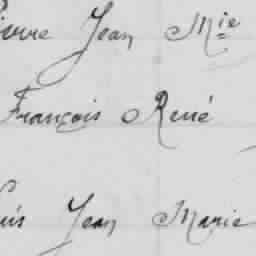 Pierre Jean Mie
François René
Jean Marie